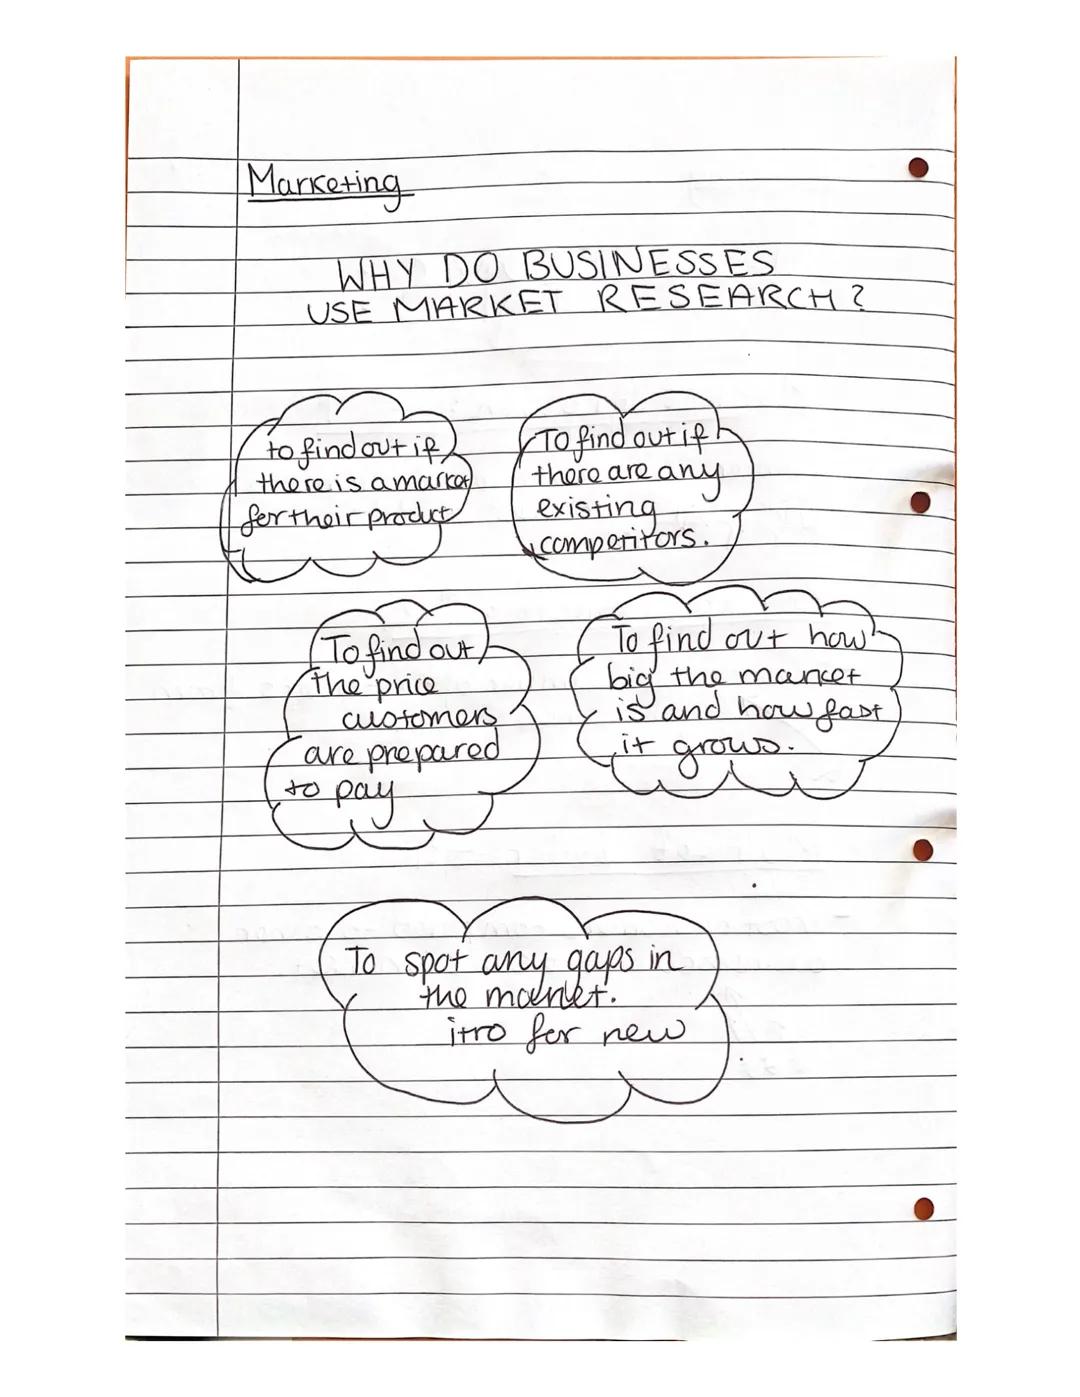 Marketing
WHY DO BUSINESSES
USE MARKET RESEARCH?
to find out if
there is a market
for their product
To find out if
there are any
existing
competitors.
To find out
the price
customers
are prepared
to pay
To find out how
big the market
is and how fast
it grows.
To spot any gaps in
the market.
itro for new